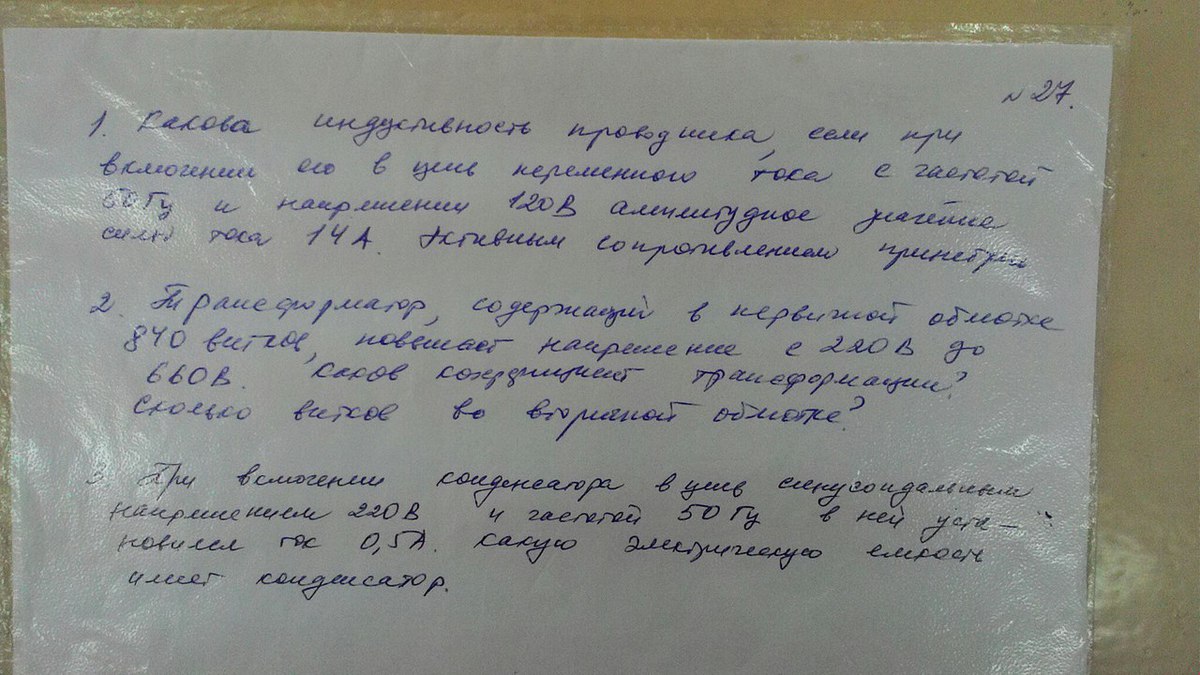 № 27.
1. Какова индуктивность проводника, если при
включении его в цепь переменного тока с частотой
50 Гц и напряжении 120 В амплитудное значение
силы тока 14 А. Активным сопротивлением
2. Трансформатор, содержащий в первичной обмотке
840 витков, повышает напряжение с 220 В до
660 В. Каков коэффициент трансформации?
Сколько витков во вторичной обмотке?
3 При включении конденсатора в цепь синусоидальным
напряжением 220 В и частотой 50 Гц в ней уста-
новился ток 0,5 А. Какую электрическую емкость
имеет конденсатор.